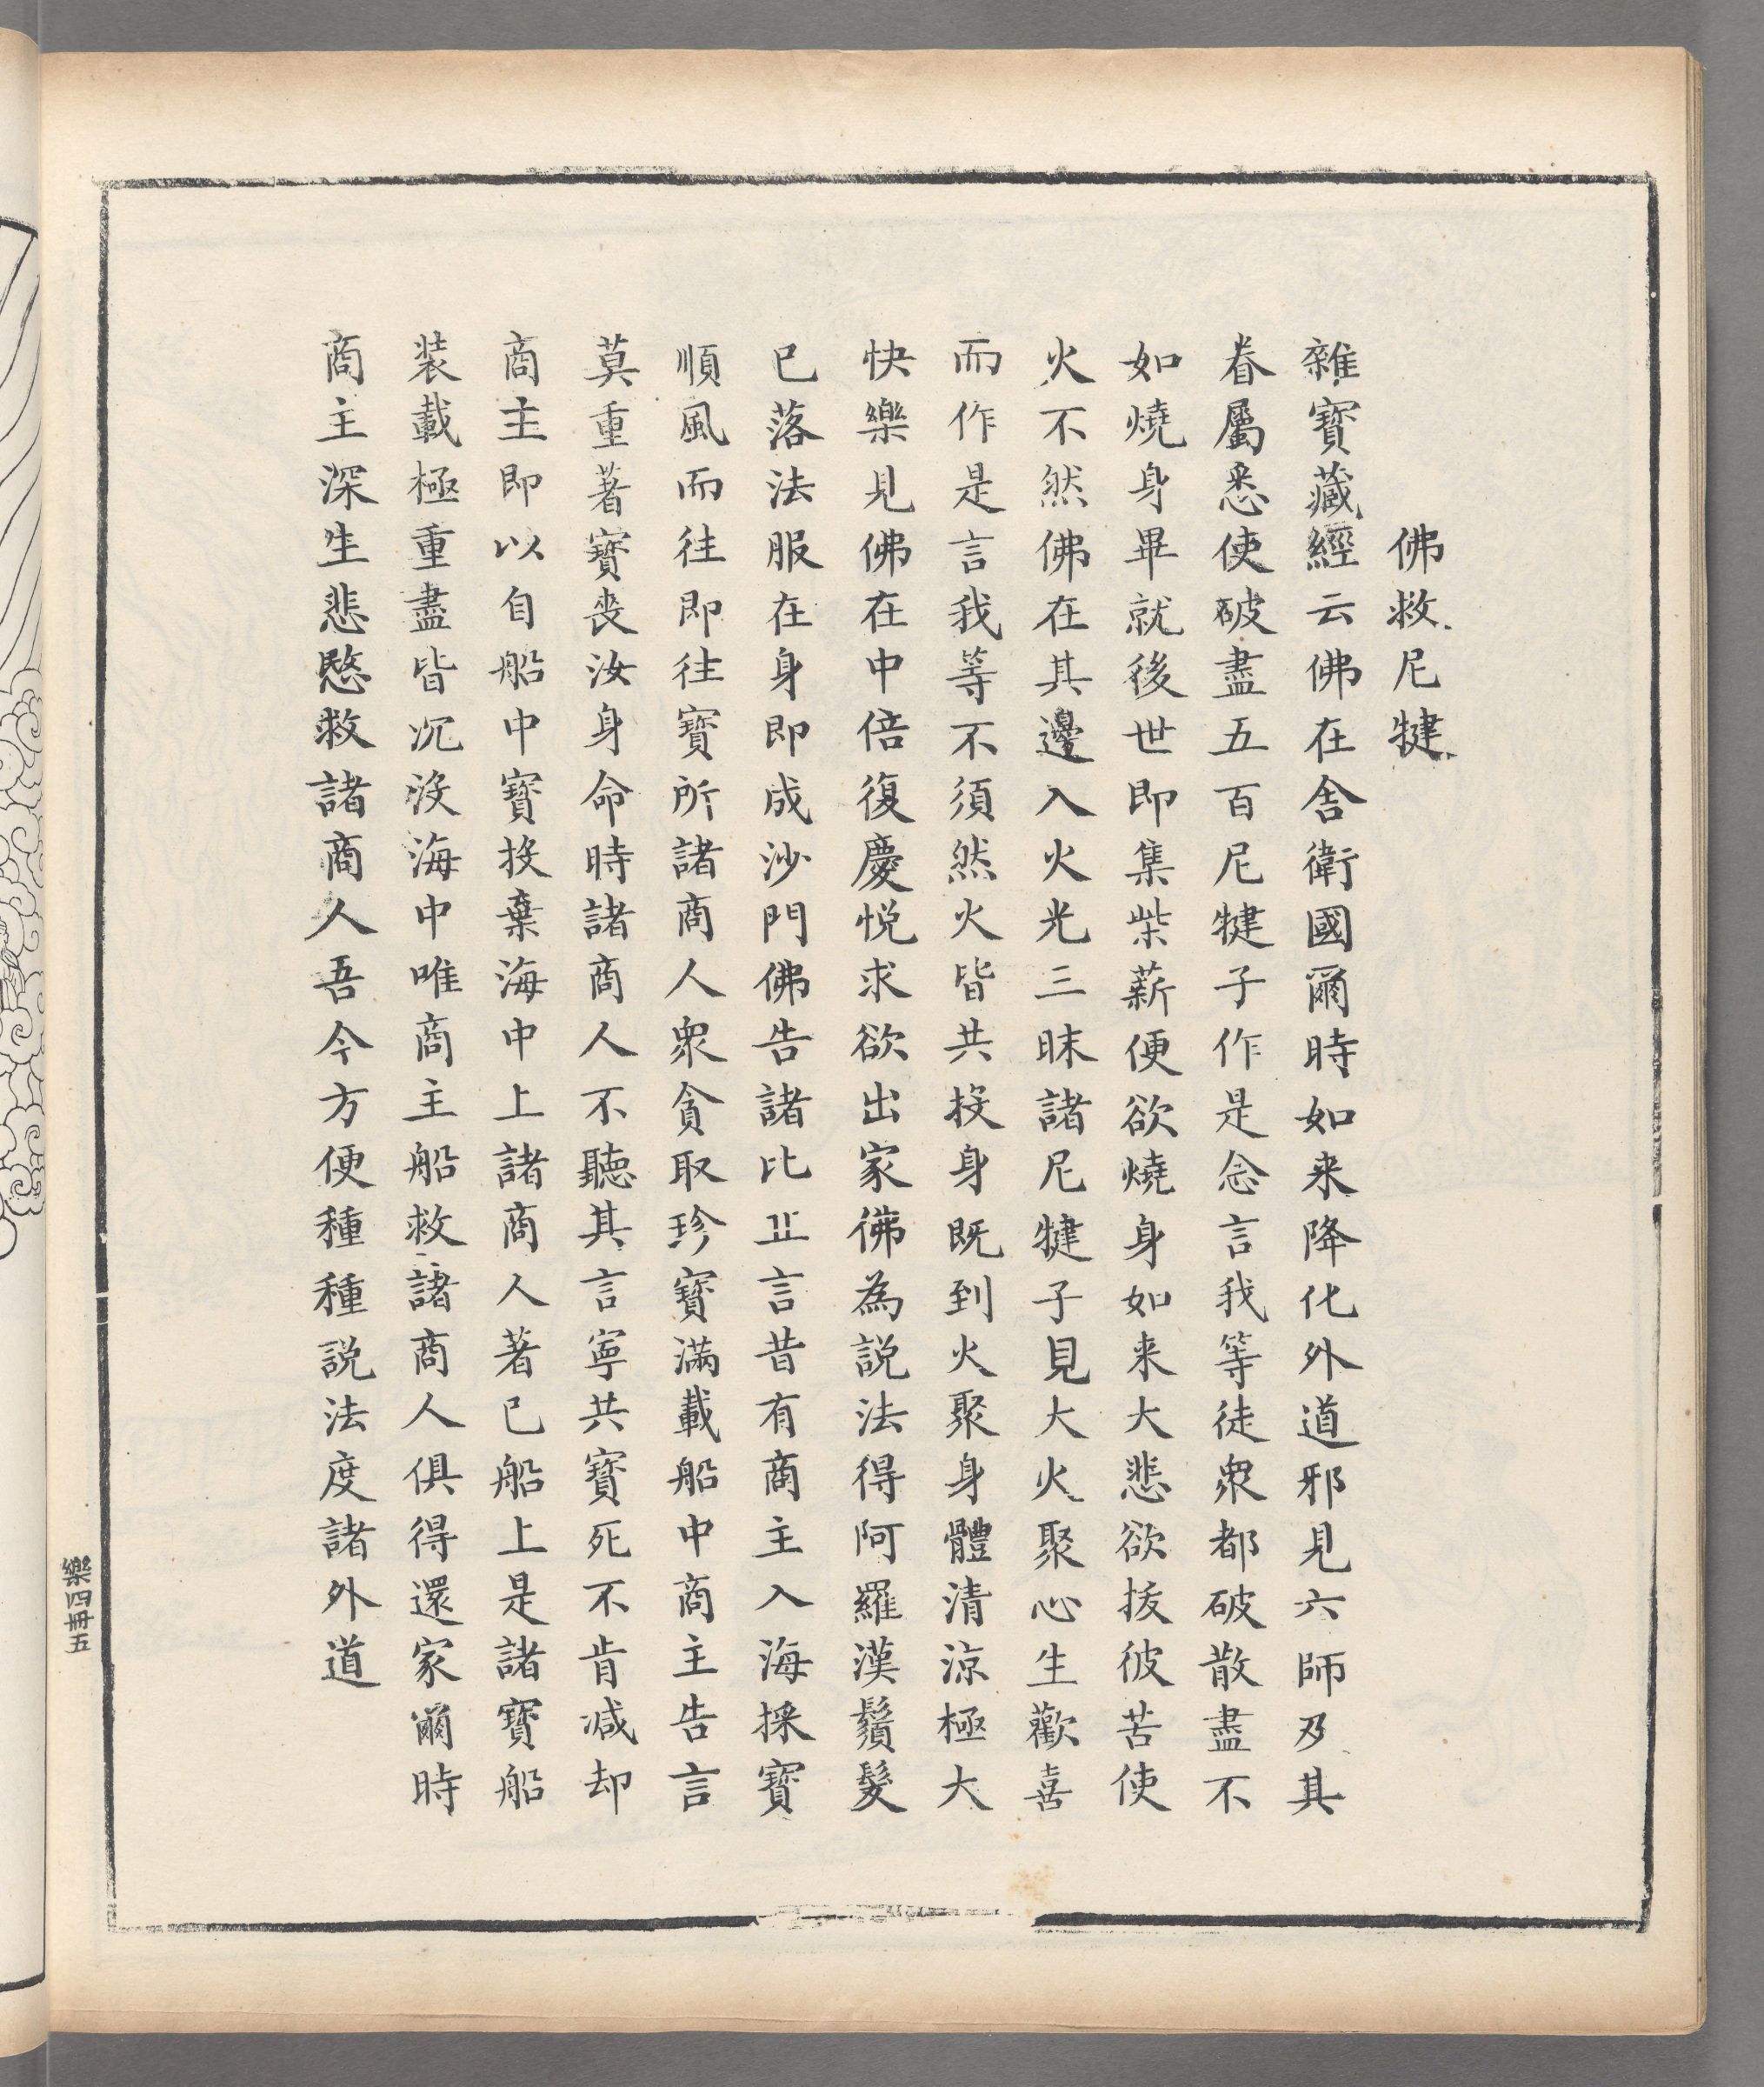 佛救尼犍
雜寶藏經云佛在舍衛國爾時如来降化外道邪見六師及其
眷屬悉使破盡五百尼犍子作是念言我等徒衆都破散盡不
如燒身畢就後世即集柴薪便欲燒身如来大悲欲拔彼苦使
火不然佛在其邊入火光三昧諸尼犍子見大火聚心生歡喜
而作是言我等不須然火皆共投身既到火聚身體清涼極大
快樂見佛在中倍復慶悦求欲出家佛為説法得阿羅漢鬚髮
已落法服在身即成沙門佛告諸比丘言昔有商主入海採寶
順風而往即往寶所諸商人衆貪取珍寶滿載船中商主告言
莫重著寶丧汝身命時諸商人不聽其言寧共寶死不肯减却
商主即以自船中寶投棄海中上諸商人著已船上是諸寶船
装載極重盡皆沉沒海中唯商主船救諸商人俱得還家爾時
商主深生悲愍救諸商人吾今方便種種説法度諸外道
樂四冊五